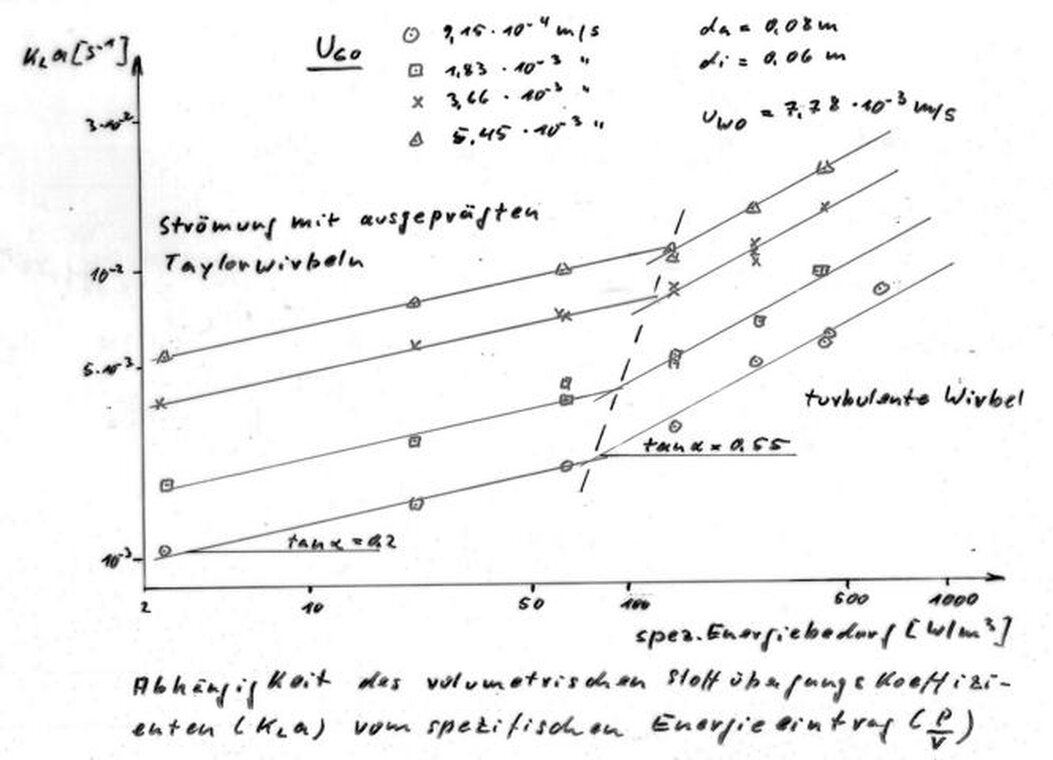 K_L a [s⁻¹]
U_GO
⊙ 9,15 · 10⁻⁴ m/s
⊡ 1,83 · 10⁻³ "
× 3,66 · 10⁻³ "
△ 5,45 · 10⁻³ "
da = 0,08 m
di = 0,06 m
u_WO = 7,78 · 10⁻³ m/s
3·10⁻²
10⁻²
5·10⁻³
10⁻³
Strömung mit ausgeprägten
Taylorwirbeln
turbulente Wirbel
tan α = 0,55
tan α = 0,2
2 10 50 100 500 1000
spez. Energiebedarf [W/m³]
Abhängigkeit des volumetrischen Stoffübergangskoeffizi-
enten (K_L a) vom spezifischen Energieeintrag (P/V)